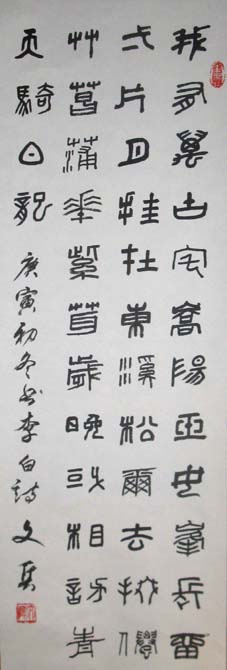 我有萬古宅嵩陽玉女峯長留
弌片月挂在東溪松爾去掇僊
艸菖蒲花紫茸歲晚或相訪青
天騎白龍 庚寅初冬书李白詩 文